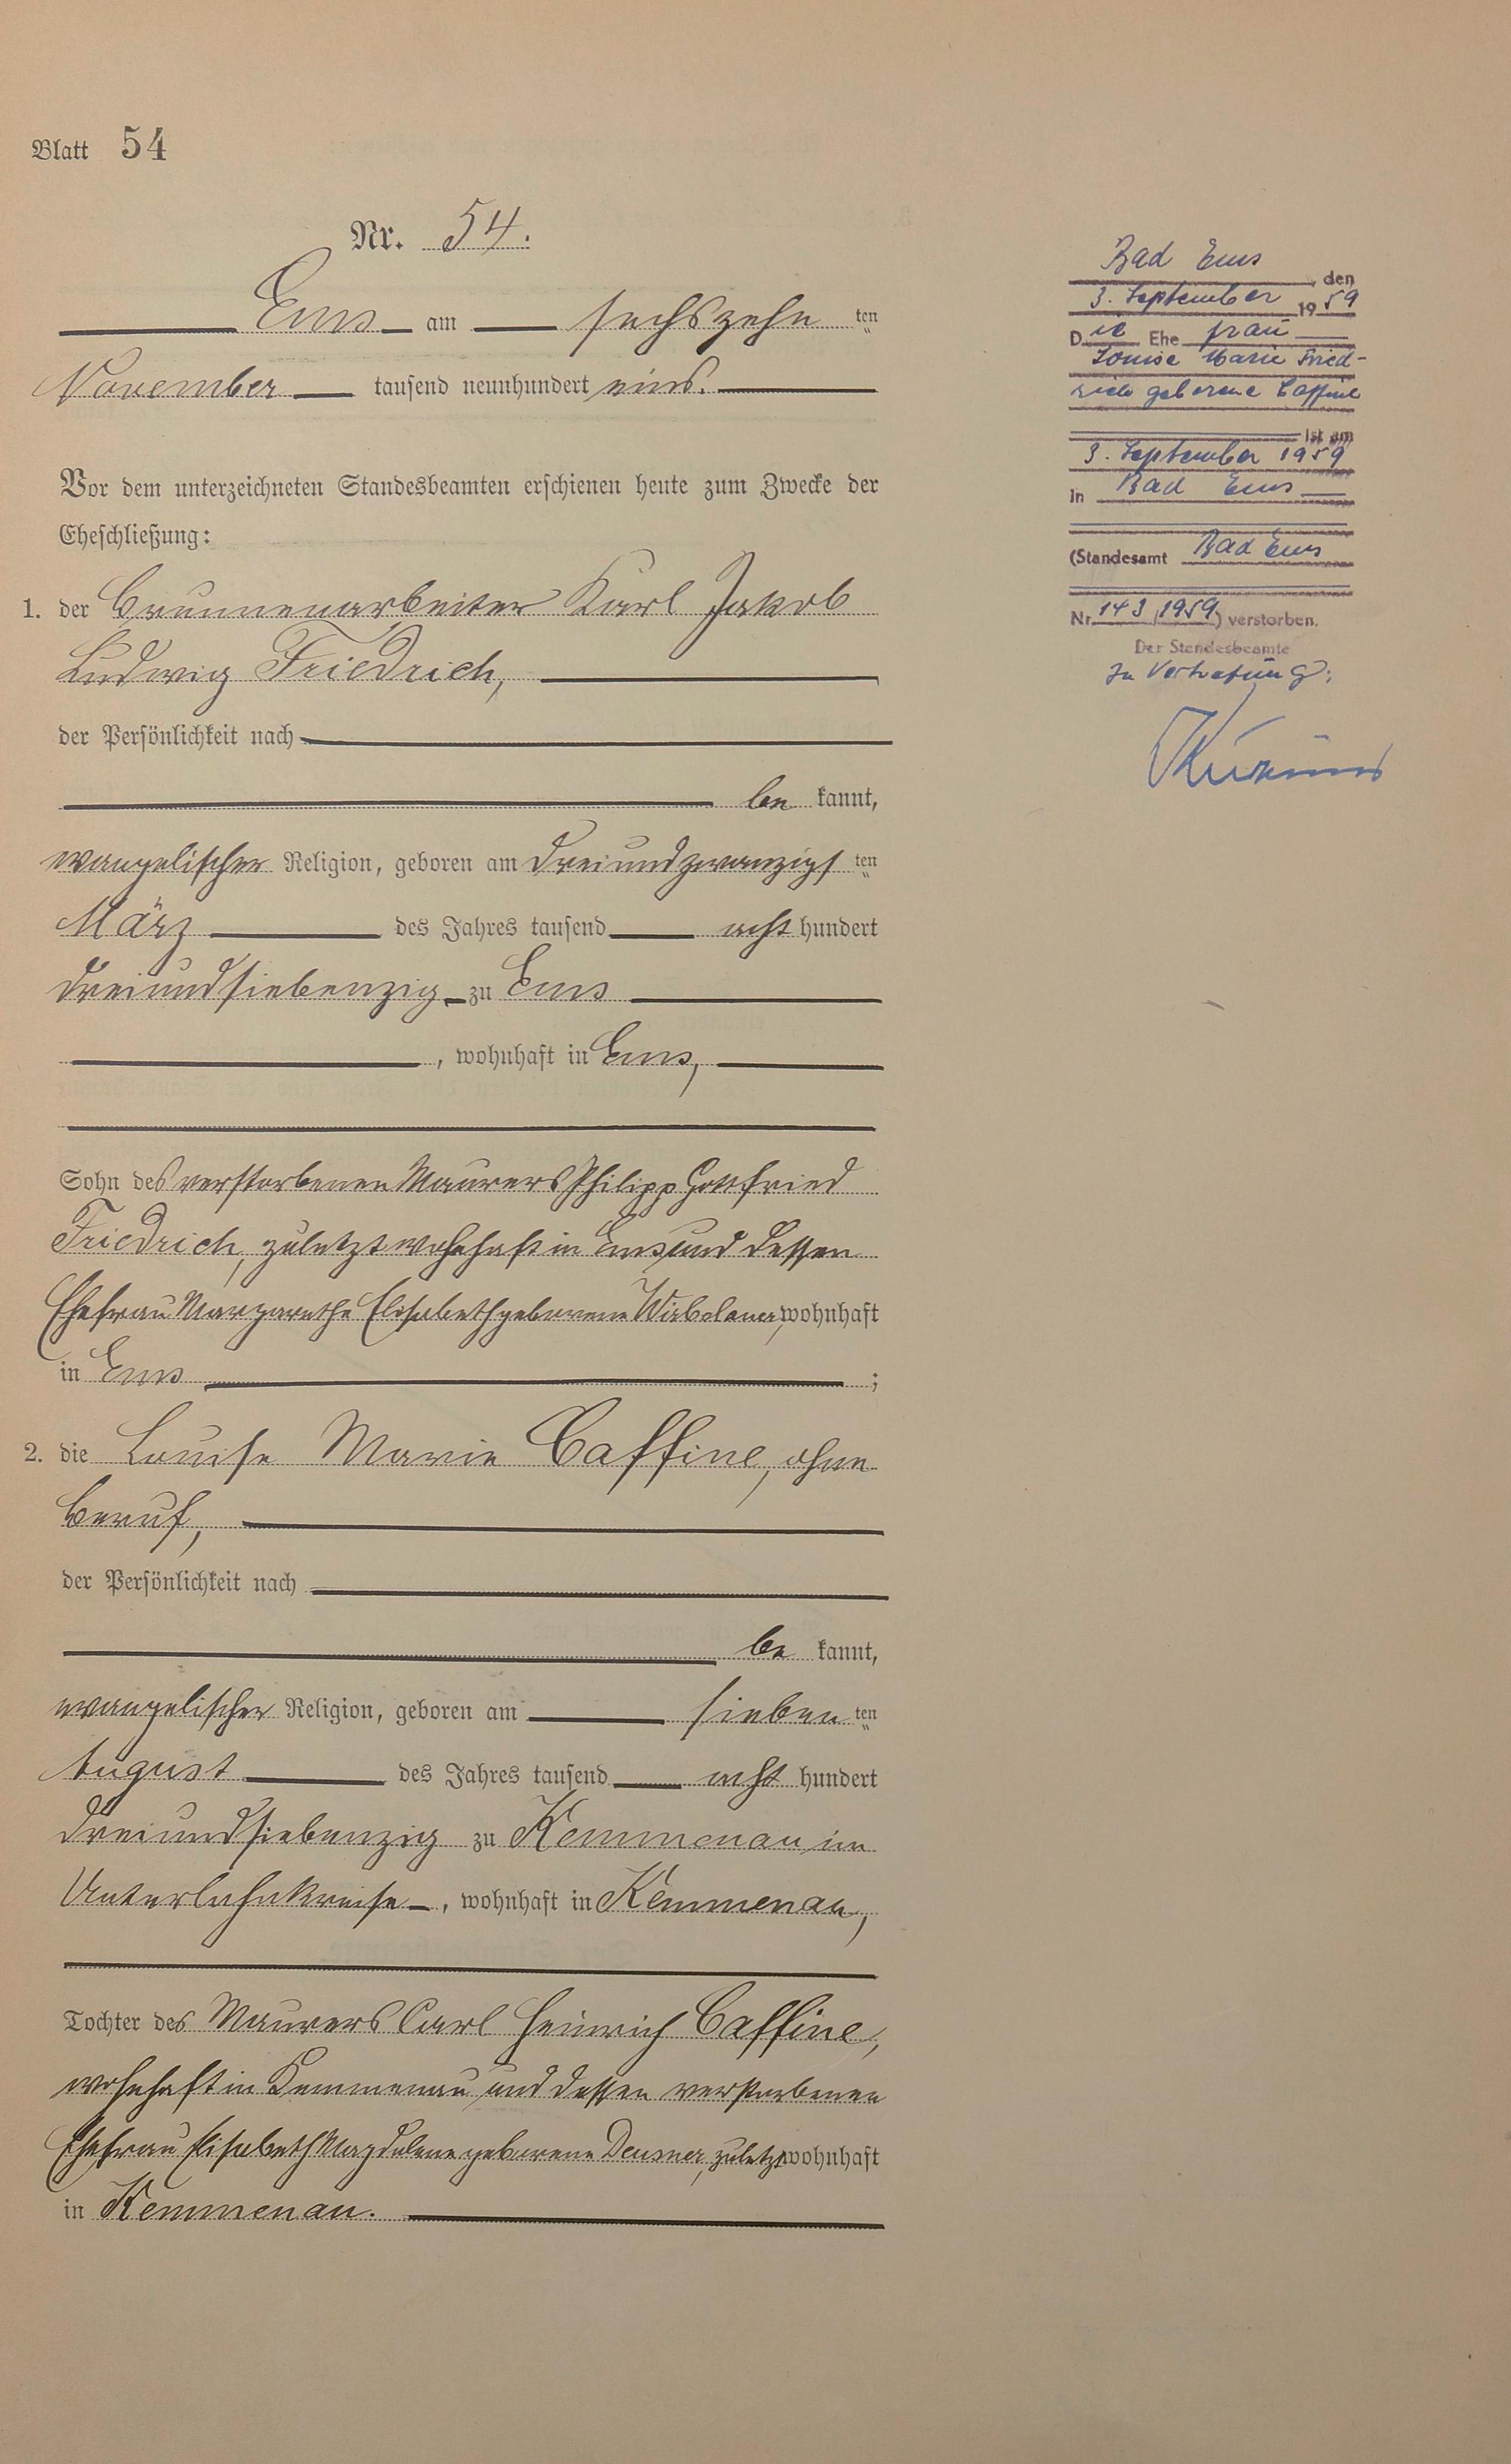 Blatt 54
Nr. 54.
Ems am sechszehn ten
November tausend neunhundert eins.
Vor dem unterzeichneten Standesbeamten erschienen heute zum Zwecke der
Eheschließung:
1. der Brunnenarbeiter Karl Jakob
Ludwig Friedrich,
der Persönlichkeit nach
be kannt,
evangelischer Religion, geboren am dreiundzwanzigs ten
März des Jahres tausend acht hundert
dreiundsiebenzig zu Ems
, wohnhaft in Ems,
Sohn des verstorbenen Maurers Philipp Gottfried
Friedrich, zuletzt wohnhaft in Ems und dessen
Ehefrau Margarethe Elisabeth geborene wohnhaft
in Ems ;
2. die Louise Marie Caffine, ohne
Beruf,
der Persönlichkeit nach
be kannt,
evangelischer Religion, geboren am sieben ten
August des Jahres tausend acht hundert
dreiundsiebenzig zu Kemmenau im
Unterlahnkreise , wohnhaft in Kemmenau,
Tochter des Maurers Carl Heinrich Caffine,
wohnhaft in Kemmenau und dessen verstorbenen
Ehefrau Elisabeth Magdalene geborene Deusner, zuletzt wohnhaft
in Kemmenau.
Bad Ems , den
3. September 1959
Die Ehefrau
Louise Marie Fried-
rich geborene Caffine
ist am
3. September 1959
in Bad Ems
(Standesamt Bad Ems
Nr. 143/1959) verstorben.
Der Standesbeamte
In Vertretung: